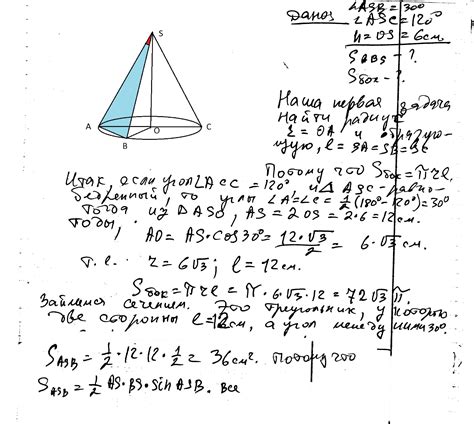 Дано: ∠ASB = 30°
∠ASC = 120°
H = OS = 6см
S_ABS - ?
S_бок - ?
S
A
B
O
C
Наша первая задача
найти радиус
r = OA и образую-
щую, l = SA = SB = SC
Потому что S_бок = πrl
Итак, если угол ∠ACC = 120° и Δ ASC - равно-
бедренный, то углы ∠A = ∠C = ½(180° - 120°) = 30°
Тогда из ΔASO, AS = 2OS = 2·6 = 12см.
AO = AS·cos30° = 12·√3/2 = 6√3 см.
т.е. r = 6√3; l = 12см.
S_бок = πrl = π·6√3·12 = 72√3 π.
Займемся сечением. Это треугольник, у которого
две стороны l = 12см, а угол между ними 30°.
S_ASB = ½·12·12·½ = 36см². Потому что
S_ASB = ½ AS·BS·sin ASB. Все